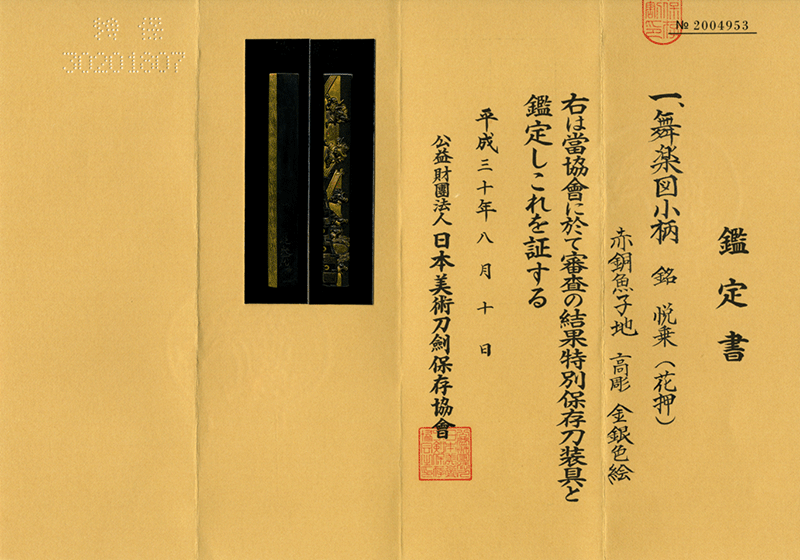 № 2004953
鑑定書
一、舞楽図小柄 銘 悦乗（花押）
赤銅魚子地 高彫 金銀色絵
右は當協會に於て審査の結果特別保存刀装具と
鑑定しこれを証する
平成三十年八月十日
公益財團法人 日本美術刀劍保存協會
特保
30201807